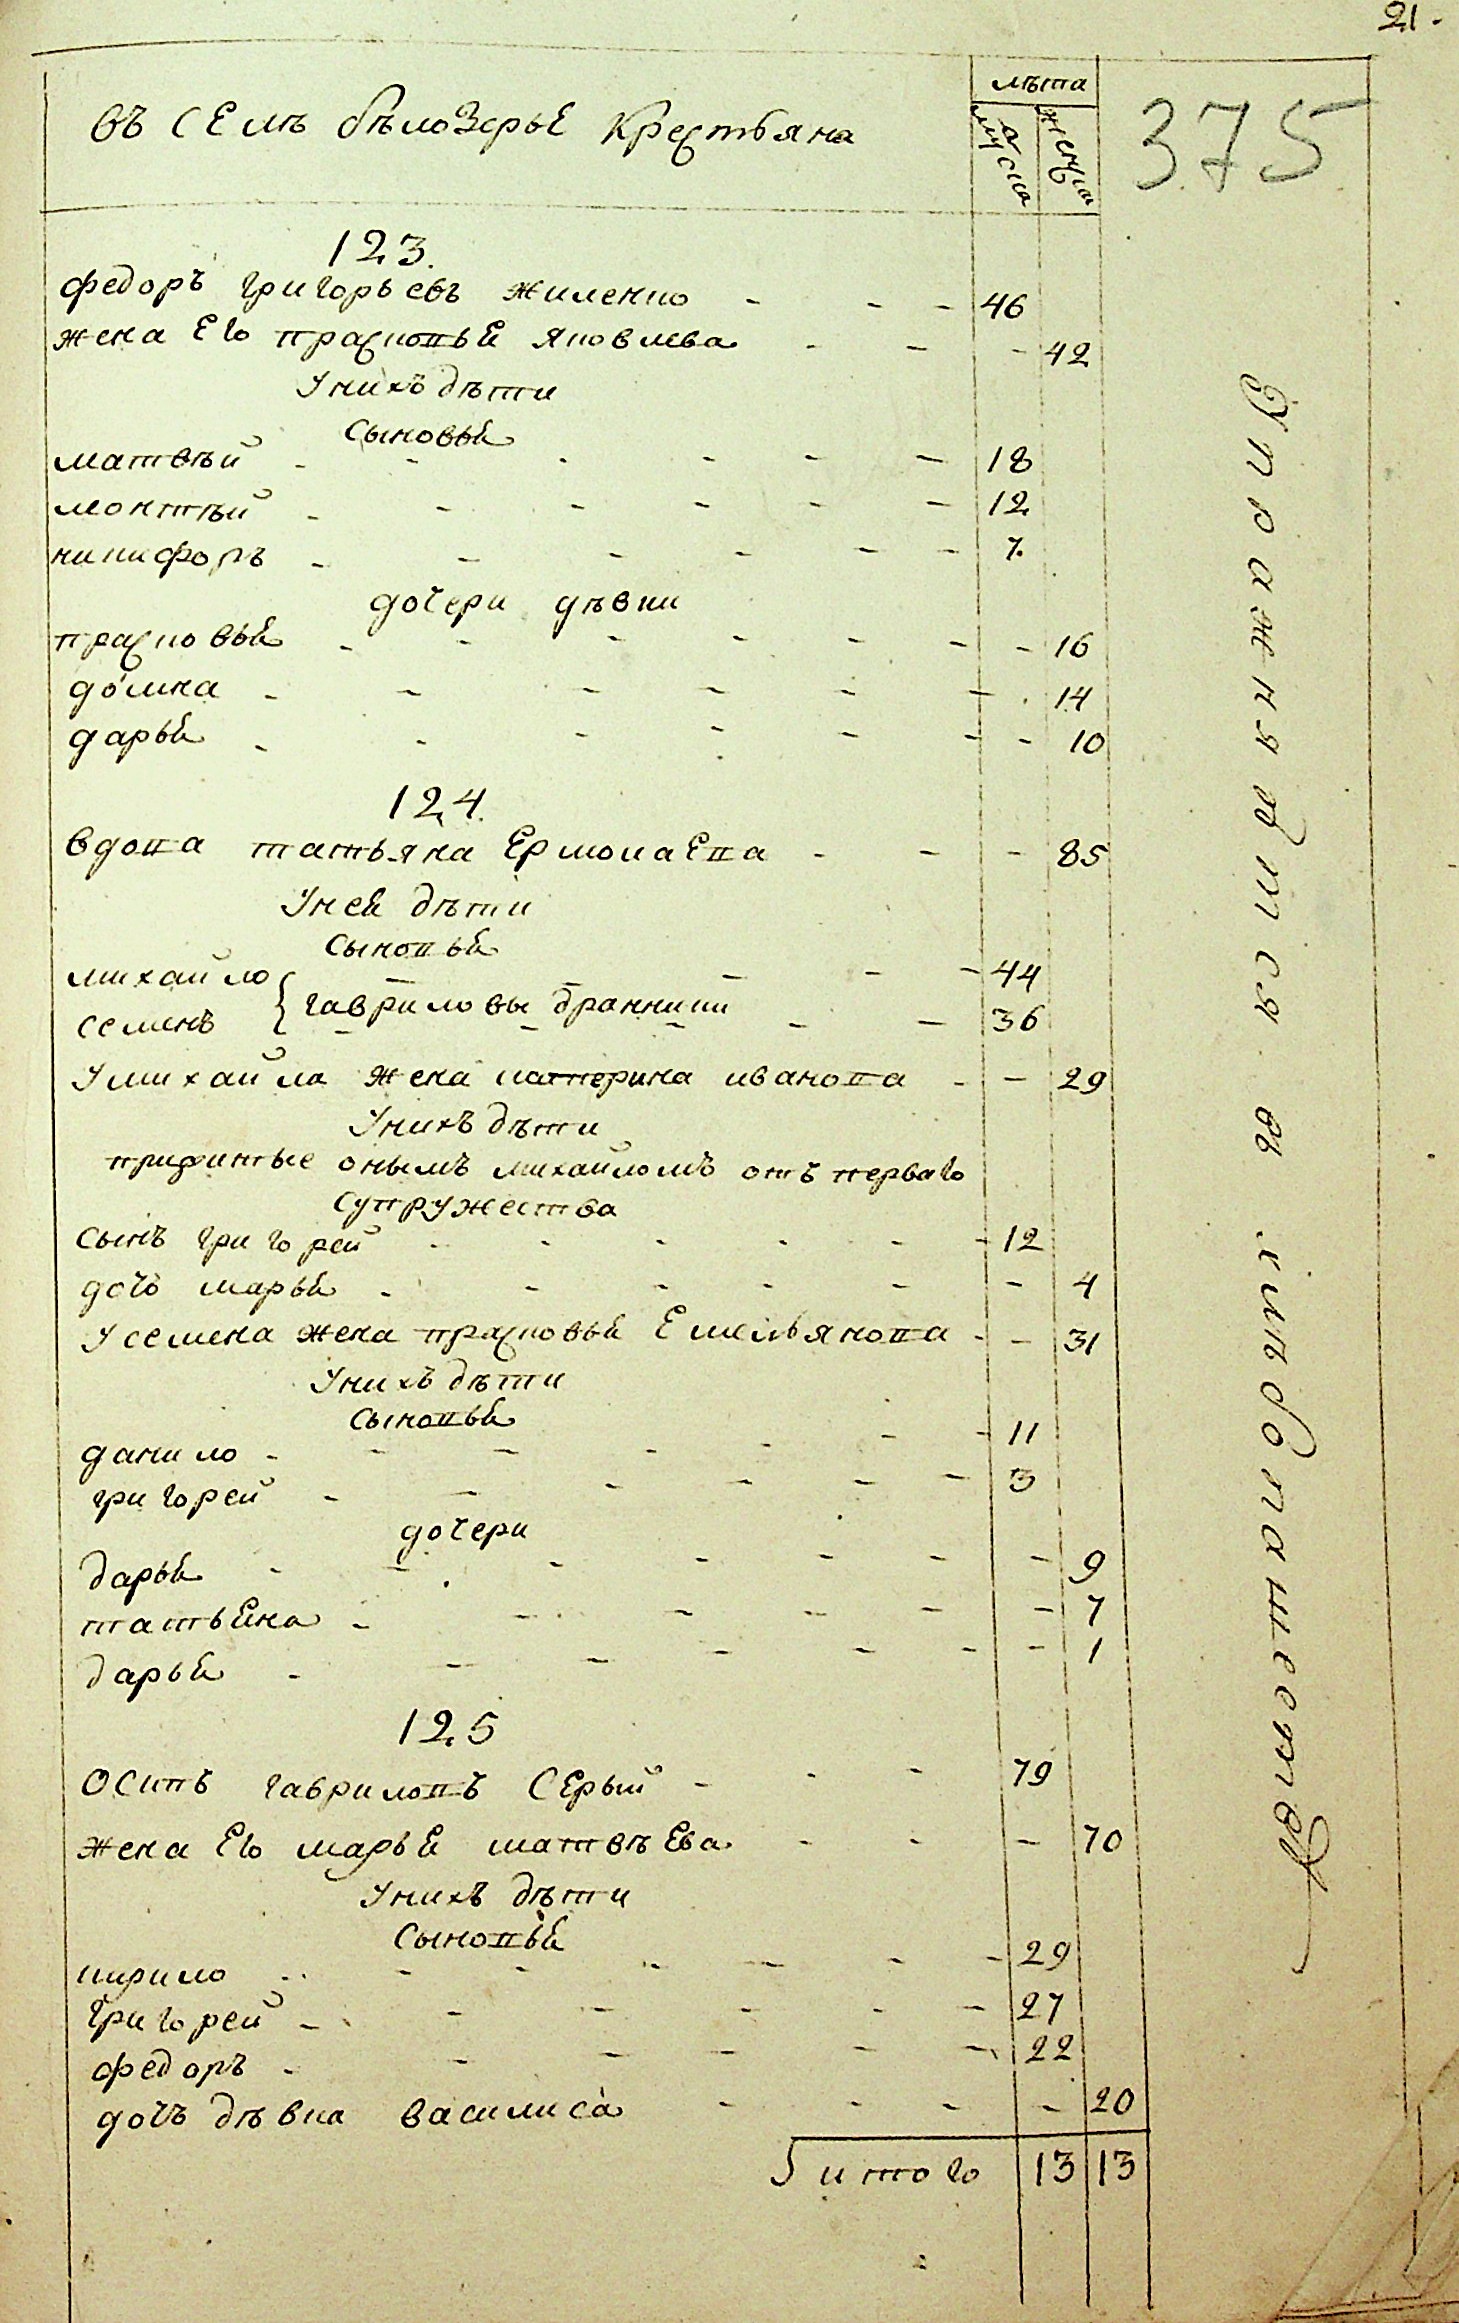 21.
375
въ селѣ бѣлозерье крестьяна
лѣта
мужска
женска
123.
федоръ григорьевъ жиленко - - - 46
жена его праскопье яковлева - - - 42
Унихъ дѣти
сыновья
матвѣй - - - - - - 18
монтѣй - - - - - - 12
никифоръ - - - - - - 7
дочери дѣвки
прасковья - - - - - - - 16
домна - - - - - - - 14
дарья - - - - - - - 10
124.
вдова татьяна Ермолаева - - - 85
Уней дѣти
сыновья
михайло - - - - - 44
гавриловы бранники
семенъ - - - - - 36
Умихайла жена катерина иванова - - 29
Унихъ дѣти
прижитые онымъ михайломъ отъ перваго
супружества
сынъ григорей - - - - - - 12
дочь марья - - - - - - 4
Усемена жена прасковья Емельянова - - 31
Унихъ дѣти
сыновья
данило - - - - - - - 11
григорей - - - - - - 3
дочери
дарья - - - - - - - 9
татьяна - - - - - - 7
дарья - - - - - - - 1
125
Осипъ гавриловъ Серый - - - 79
жена его марья матвѣева - - - 70
Унихъ дѣти
сыновья
кирило - - - - - - - 29
григорей - - - - - - 27
федоръ - - - - - - 22
дочь дѣвка василиса - - - - 20
итого 13 13